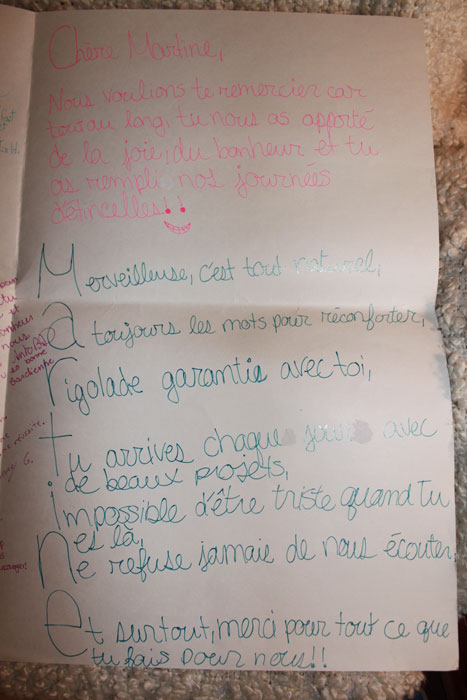 Chère Martine,
Nous voulions te remercier car
tout au long, tu nous as apporté
de la joie, du bonheur et tu
as rempli nos journées
d'étincelles!!
Merveilleuse, c'est tout naturel,
a toujours les mots pour réconforter,
rigolade garantie avec toi,
tu arrives chaque jour avec
de beaux projets,
impossible d'être triste quand tu
es là,
ne refuse jamais de nous écouter,
et surtout, merci pour tout ce que
tu fais pour nous!!